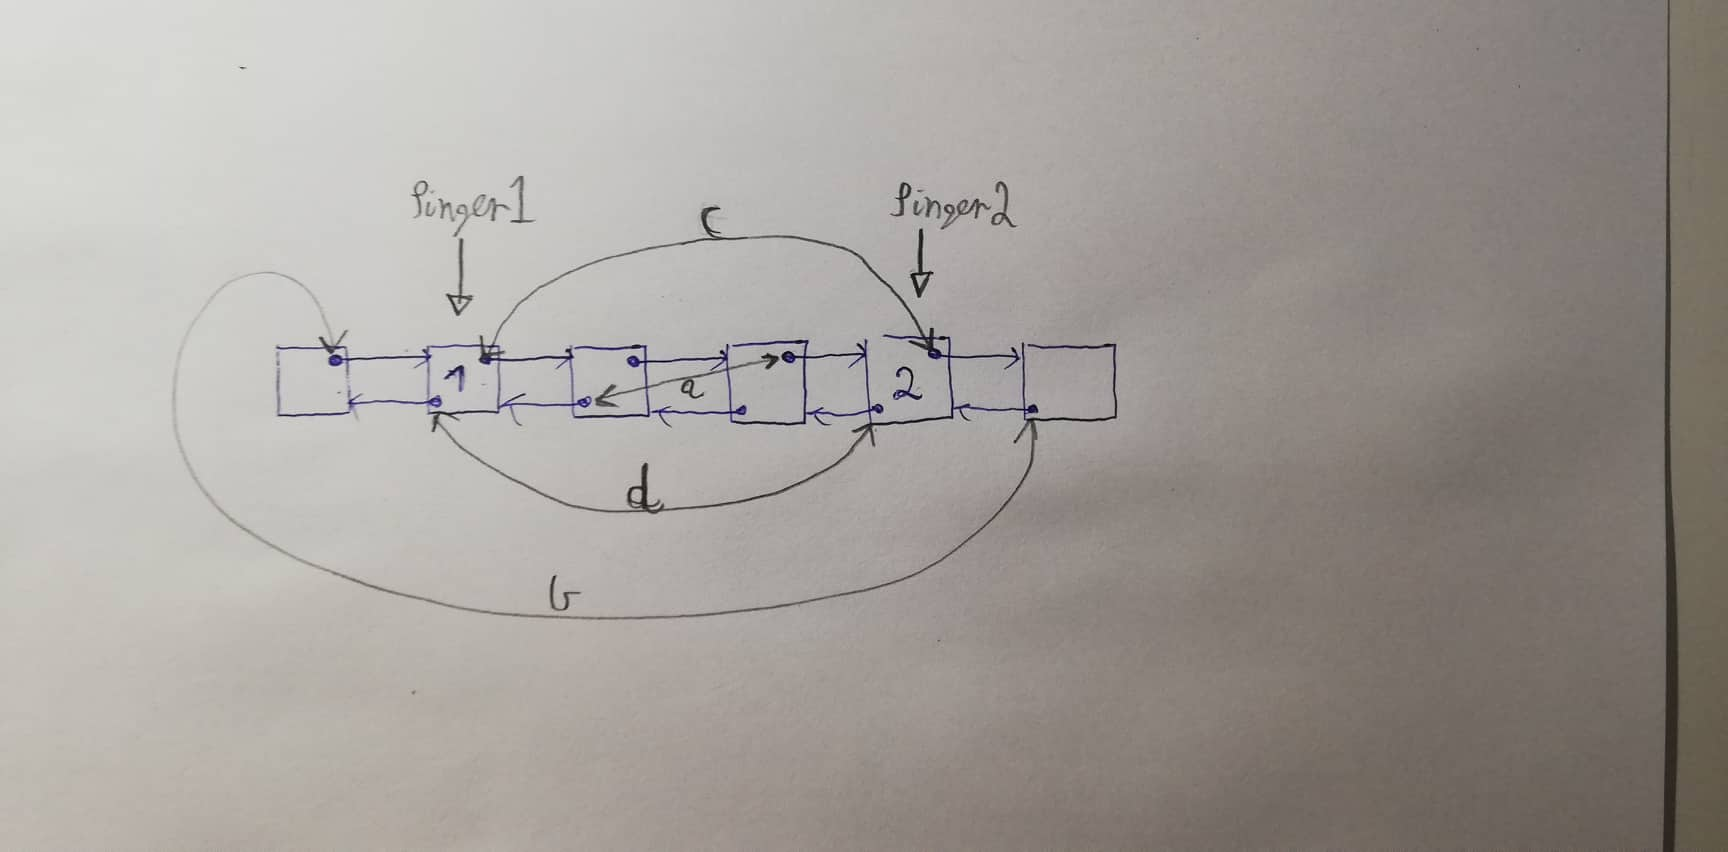 finger1
finger2
c
1
a
2
d
b